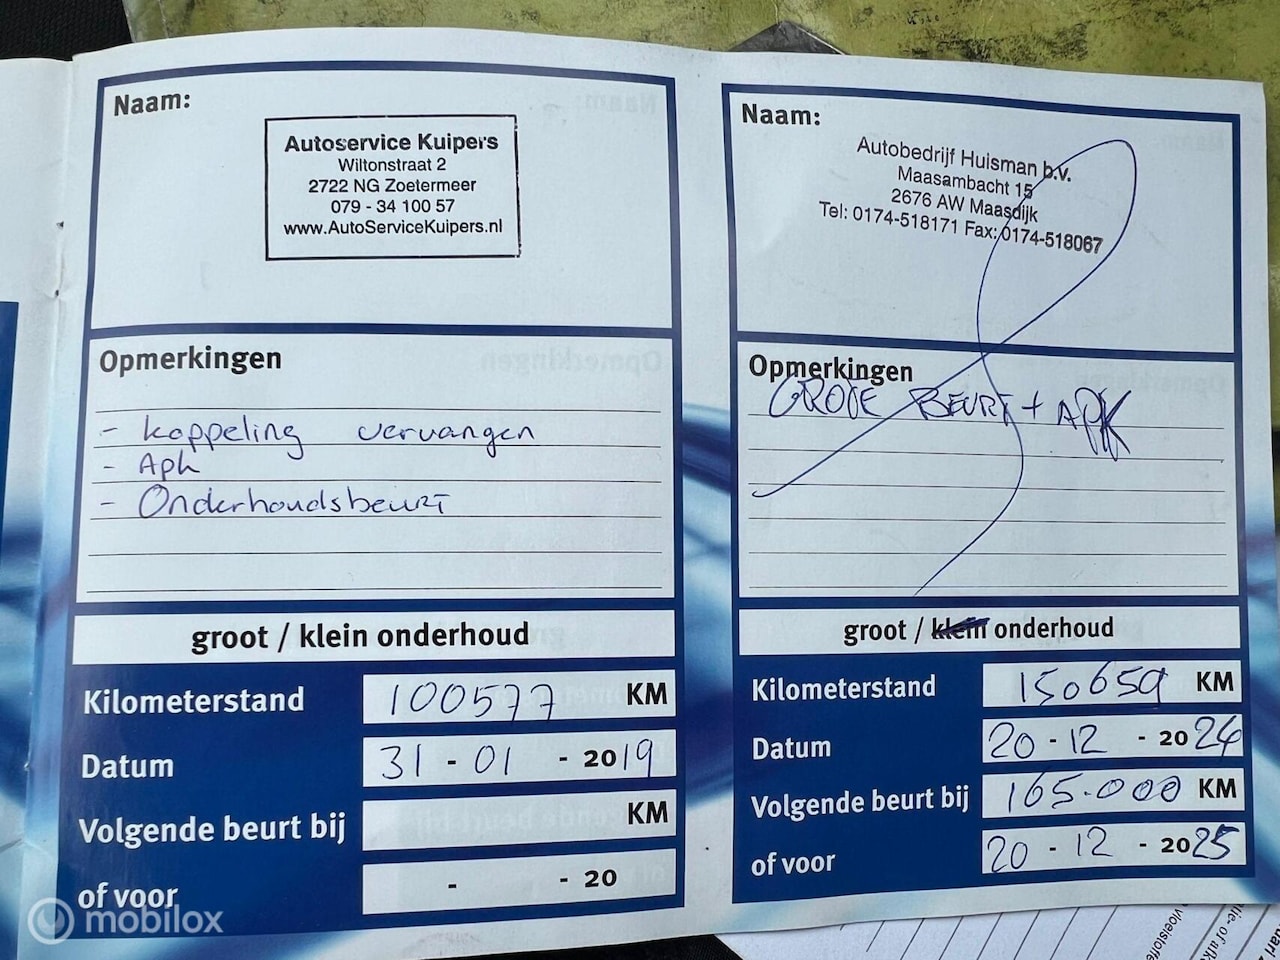 Naam:
Autoservice Kuipers
Wiltonstraat 2
2722 NG Zoetermeer
079 - 34 100 57
www.AutoServiceKuipers.nl
Opmerkingen
- koppeling vervangen
- Apk
- Onderhoudsbeurt
groot / klein onderhoud
Kilometerstand 100577 KM
Datum 31 - 01 - 2019
Volgende beurt bij KM
of voor - - 20
Naam:
Autobedrijf Huisman b.v.
Maasambacht 15
2676 AW Maasdijk
Tel: 0174-518171 Fax: 0174-518067
Opmerkingen
GROTE BEURT + APK
groot / klein onderhoud
Kilometerstand 150659 KM
Datum 20 - 12 - 2024
Volgende beurt bij 165.000 KM
of voor 20 - 12 - 2025
mobilox